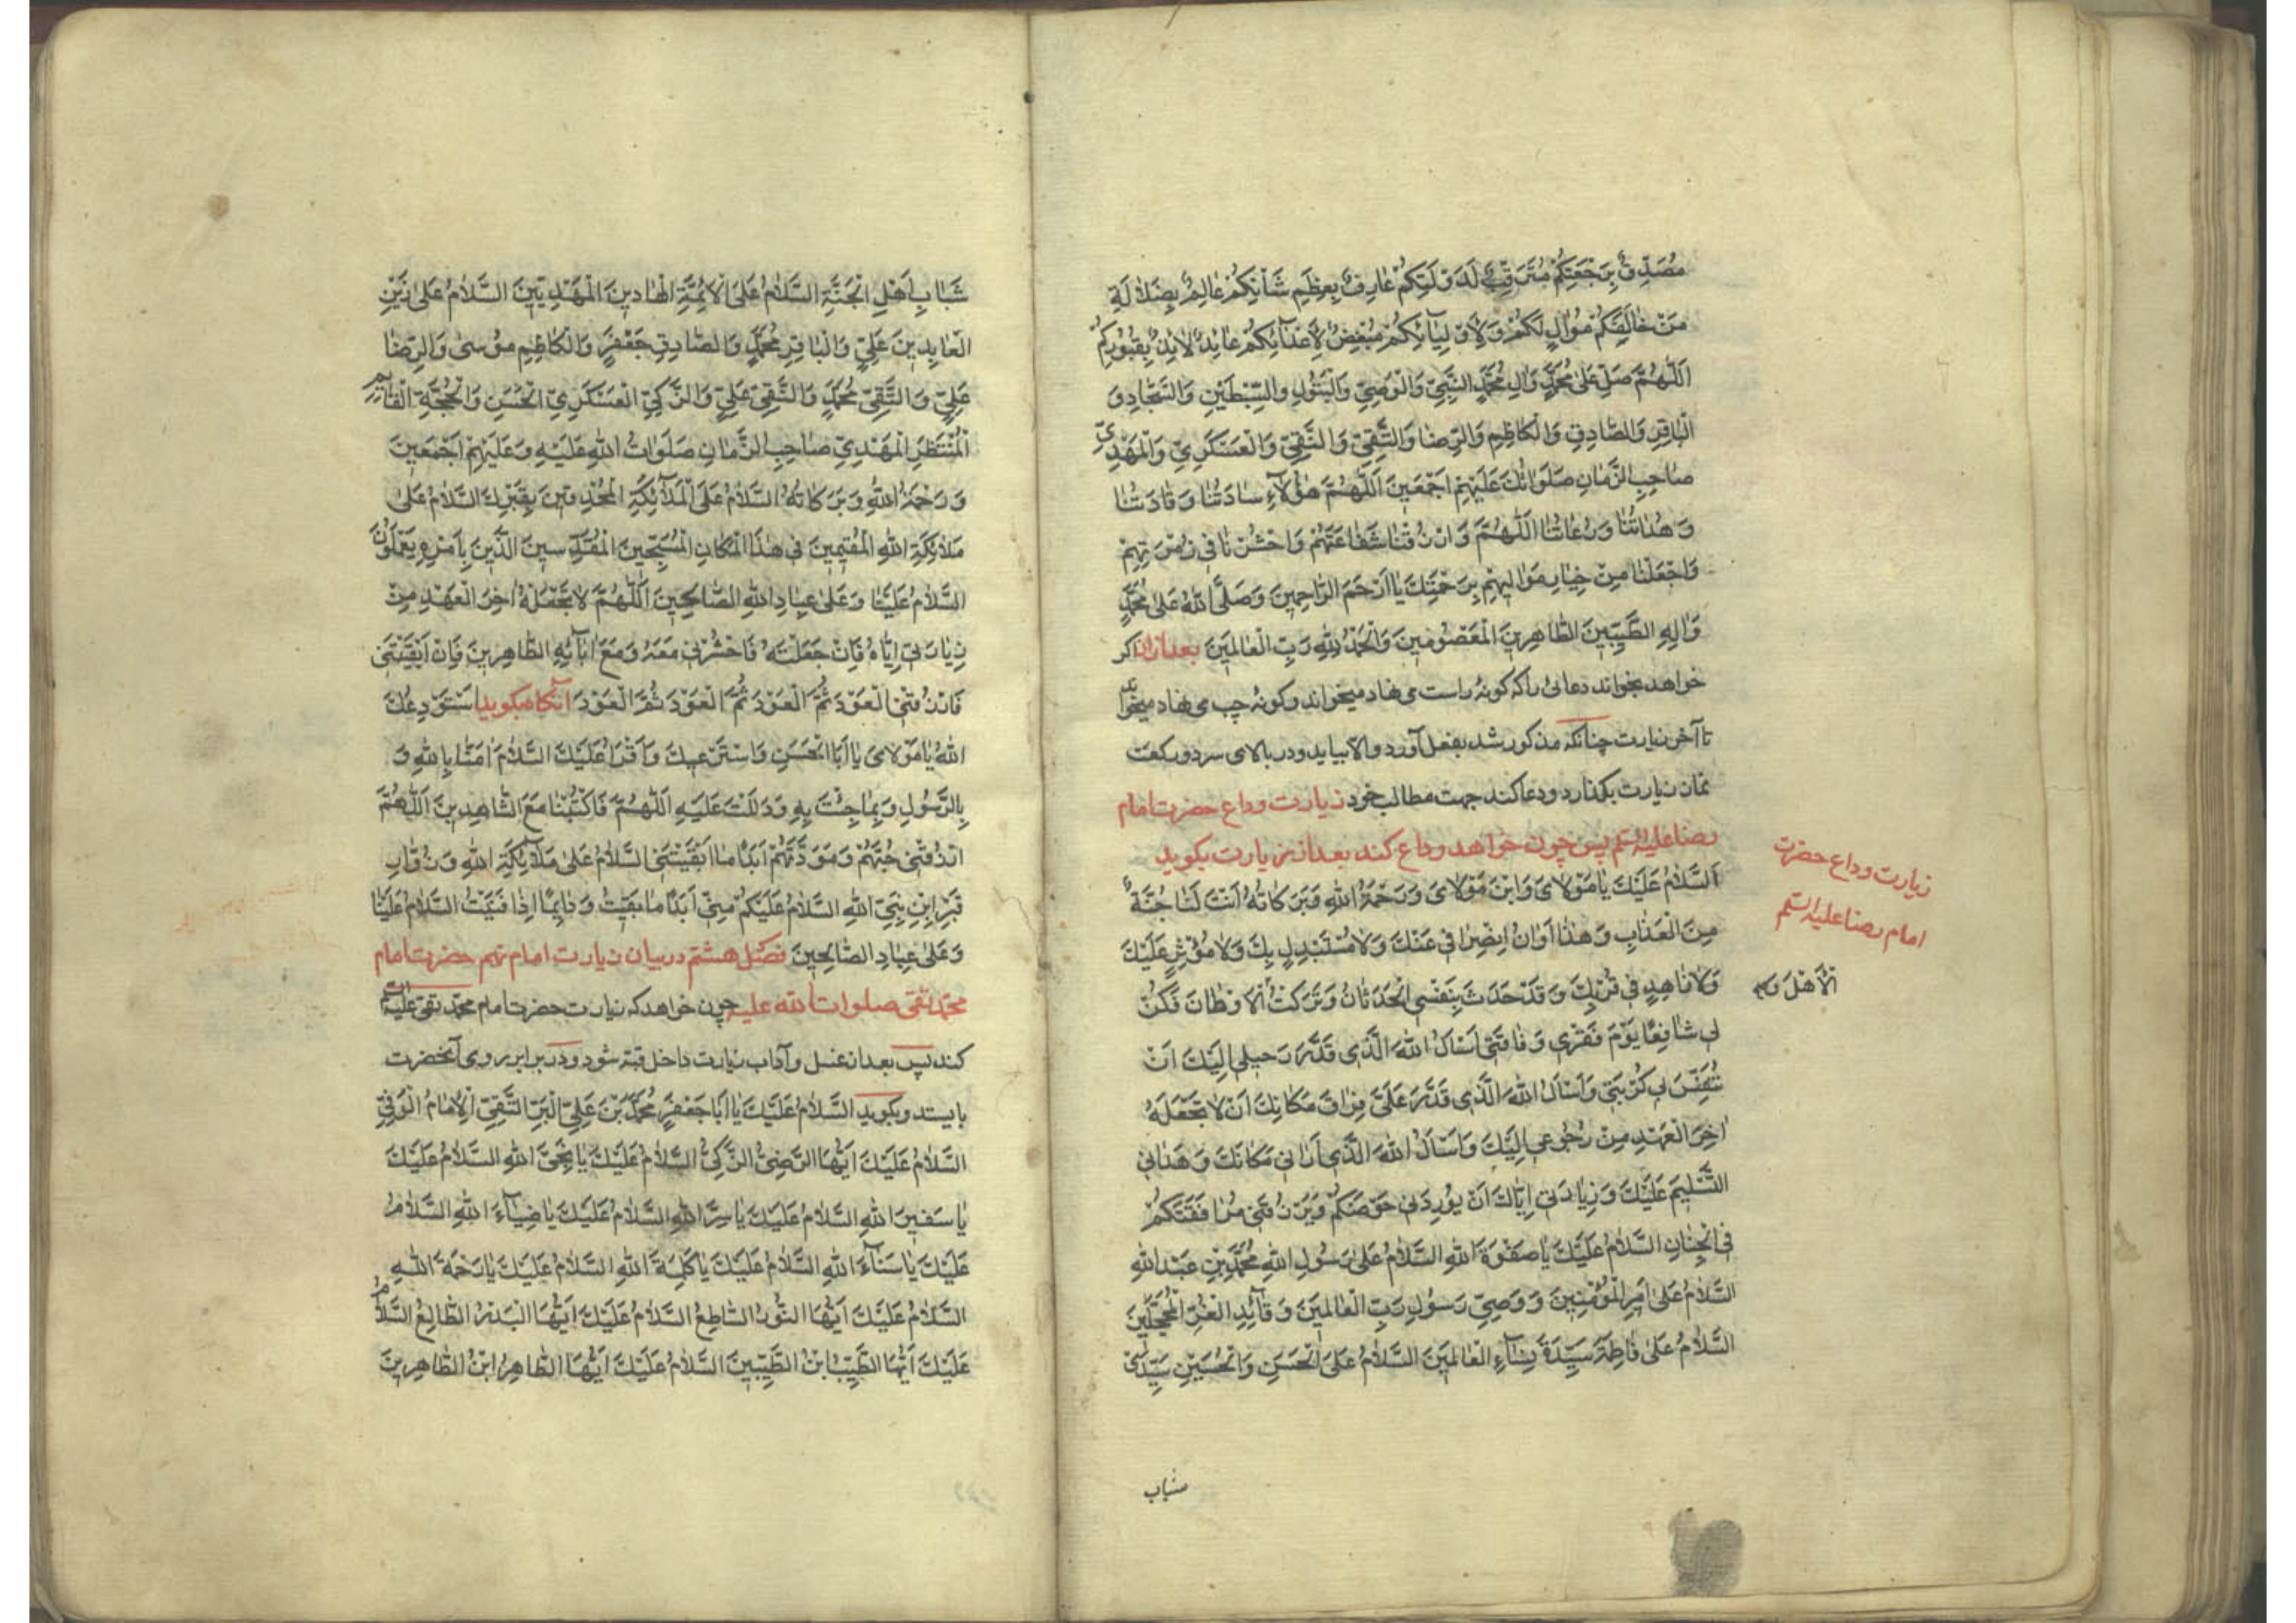 مُصَدِّقٌ بِرَجْعَتِكُمْ مُتَرَقِّبٌ لَدَوْلَتِكُمْ عَارِفٌ بِعِظَمِ شَأْنِكُمْ عَالِمٌ بِضَلَالَةِ
مَنْ خَالَفَكُمْ مُوَالٍ لَكُمْ وَلِأَوْلِيَائِكُمْ مُبْغِضٌ لِأَعْدَائِكُمْ عَائِذٌ لَائِذٌ بِقُبُورِكُمْ
اَللّٰهُمَّ صَلِّ عَلىٰ مُحَمَّدٍ وَاٰلِ مُحَمَّدٍ النَّبِيِّ وَالْوَصِيِّ وَالْبَتُولِ وَالسِّبْطَيْنِ وَالسَّجَّادِ وَ
الْبَاقِرِ وَالصَّادِقِ وَالْكَاظِمِ وَالرِّضَا وَالتَّقِيِّ وَالنَّقِيِّ وَالْعَسْكَرِيِّ وَالْمَهْدِيِّ
صَاحِبِ الزَّمَانِ صَلَوَاتُكَ عَلَيْهِمْ اَجْمَعِينَ اَللّٰهُمَّ هٰؤُلَآءِ سَادَتُنَا وَقَادَتُنَا
وَهُدَاتُنَا وَدُعَاتُنَا اَللّٰهُمَّ وَارْزُقْنَا شَفَاعَتَهُمْ وَاحْشُرْنَا فِي زُمْرَتِهِمْ
وَاجْعَلْنَا مِنْ خِيَارِ مَوَالِيهِمْ بِرَحْمَتِكَ يَا اَرْحَمَ الرَّاحِمِينَ وَصَلَّى اللهُ عَلىٰ مُحَمَّدٍ
وَاٰلِهِ الطَّيِّبِينَ الطَّاهِرِينَ الْمَعْصُومِينَ وَالْحَمْدُ لِلّٰهِ رَبِّ الْعَالَمِينَ بعد از آن اكر
خواهد بخواند دعائى را كه كونهٔ راست مى نهاد ميخواند و كونهٔ چپ مى نهاد ميخواند
تا آخر زيارت چنانكه مذكور شد بفعل آورد والا بيايد و در بالاى سر دو ركعت
نماز زيارت بكذارد و دعا كند جهت مطالب خود زيارت وداع حضرت امام
رضا عليه السلم پس چون خواهد وداع كند بعد از زيارت بكويد
اَلسَّلَامُ عَلَيْكَ يَا مَوْلَايَ وَابْنَ مَوْلَايَ وَرَحْمَةُ اللهِ وَبَرَكَاتُهُ اَنْتَ لَنَا جُنَّةٌ
مِنَ الْعَذَابِ وَهٰذَا اَوَانُ انْصِرَافِي عَنْكَ وَلَا مُسْتَبْدِلٍ بِكَ وَلَا مُؤْثِرٍ عَلَيْكَ
وَلَا زَاهِدٍ فِي قُرْبِكَ وَقَدْ حَدَثَ بِنَفْسِي الْحَدَثَانُ وَتَرَكْتُ الْاَوْطَانَ فَكُنْ
لِي شَافِعًا يَوْمَ فَقْرِي وَفَاقَتِي اَسْأَلُ اللهَ الَّذِي قَدَّرَ رَحِيلِي اِلَيْكَ اَنْ
تُنَفِّسَ بِكَ كُرْبَتِي وَاَسْأَلُ اللهَ الَّذِي قَدَّرَ عَلَيَّ فِرَاقَ مَكَانِكَ اَنْ لَا تَجْعَلَهُ
اٰخِرَ الْعَهْدِ مِنْ رُجُوعِي اِلَيْكَ وَاَسْأَلُ اللهَ الَّذِي اَرَانِي مَكَانَكَ وَهَدَانِي
التَّسْلِيمَ عَلَيْكَ وَزِيَارَتِي اِيَّاكَ اَنْ يُورِدَنِي حَوْضَكُمْ وَيَرْزُقَنِي مُرَافَقَتَكُمْ
فِي الْجِنَانِ السَّلَامُ عَلَيْكَ يَا صَفْوَةَ اللهِ السَّلَامُ عَلىٰ رَسُولِ اللهِ مُحَمَّدِ بْنِ عَبْدِ اللهِ
السَّلَامُ عَلىٰ اَمِيرِ الْمُؤْمِنِينَ وَوَصِيِّ رَسُولِ رَبِّ الْعَالَمِينَ وَقَآئِدِ الْغُرِّ الْمُحَجَّلِينَ
السَّلَامُ عَلىٰ فَاطِمَةَ سَيِّدَةِ نِسَآءِ الْعَالَمِينَ السَّلَامُ عَلَى الْحَسَنِ وَالْحُسَيْنِ سَيِّدَيْ
شباب
زيارت وداع حضرت
امام رضا عليه السلم
الْاَهْلَ وَ
شَبَابِ اَهْلِ الْجَنَّةِ السَّلَامُ عَلَى الْاَئِمَّةِ الْهَادِينَ الْمَهْدِيِّينَ السَّلَامُ عَلىٰ زَيْنِ
الْعَابِدِينَ عَلِيٍّ وَالْبَاقِرِ مُحَمَّدٍ وَالصَّادِقِ جَعْفَرٍ وَالْكَاظِمِ مُوسىٰ وَالرِّضَا
عَلِيٍّ وَالتَّقِيِّ مُحَمَّدٍ وَالنَّقِيِّ عَلِيٍّ وَالزَّكِيِّ الْعَسْكَرِيِّ الْحَسَنِ وَالْحُجَّةِ الْقَآئِمِ
الْمُنْتَظَرِ الْمَهْدِيِّ صَاحِبِ الزَّمَانِ صَلَوَاتُ اللهِ عَلَيْهِ وَعَلَيْهِمْ اَجْمَعِينَ
وَرَحْمَةُ اللهِ وَبَرَكَاتُهُ السَّلَامُ عَلَى الْمَلَآئِكَةِ الْمُحْدِقِينَ بِقَبْرِكَ السَّلَامُ عَلىٰ
مَلَائِكَةِ اللهِ الْمُقِيمِينَ فِي هٰذَا الْمَكَانِ الْمُسَبِّحِينَ الْمُقَدِّسِينَ الَّذِينَ بِاَمْرِهِ يَعْمَلُونَ
السَّلَامُ عَلَيْنَا وَعَلىٰ عِبَادِ اللهِ الصَّالِحِينَ اَللّٰهُمَّ لَا تَجْعَلْهُ اٰخِرَ الْعَهْدِ مِنْ
زِيَارَتِي اِيَّاهُ فَاِنْ جَعَلْتَهُ فَاحْشُرْنِي مَعَهُ وَمَعَ اٰبَآئِهِ الطَّاهِرِينَ فَاِنْ اَبْقَيْتَنِي
فَارْزُقْنِي الْعَوْدَ ثُمَّ الْعَوْدَ ثُمَّ الْعَوْدَ ثُمَّ الْعَوْدَ آنكاه بكويد اَسْتَوْدِعُكَ
اللهَ يَا مَوْلَايَ يَا اَبَا الْحَسَنِ وَاَسْتَرْعِيكَ وَاَقْرَأُ عَلَيْكَ السَّلَامَ اٰمَنَّا بِاللهِ وَ
بِالرَّسُولِ وَبِمَا جِئْتَ بِهِ وَدَلَلْتَ عَلَيْهِ اَللّٰهُمَّ فَاكْتُبْنَا مَعَ الشَّاهِدِينَ اَللّٰهُمَّ
ارْزُقْنِي حُبَّهُمْ وَمَوَدَّتَهُمْ اَبَدًا مَا اَبْقَيْتَنِي السَّلَامُ عَلىٰ مَلَآئِكَةِ اللهِ وَزُوَّارِ
قَبْرِ ابْنِ نَبِيِّ اللهِ السَّلَامُ عَلَيْكُمْ مِنِّي اَبَدًا مَا بَقِيتُ وَدَآئِمًا اِذَا فَنِيتُ السَّلَامُ عَلَيْنَا
وَعَلىٰ عِبَادِ الصَّالِحِينَ فصل هشتم در بيان زيارت امام نهم حضرت امام
محمد تقى صلوات الله عليه چون خواهد كه زيارت حضرت امام محمد تقى عليه السلم
كند پس بعد از غسل و آداب زيارت داخل قبه شود و در برابر روى آنحضرت
بايستد و بكويد السَّلَامُ عَلَيْكَ يَا اَبَا جَعْفَرٍ مُحَمَّدَ بْنَ عَلِيٍّ الْبَرَّ التَّقِيَّ الْاِمَامَ الْوَفِيَّ
السَّلَامُ عَلَيْكَ اَيُّهَا الرَّضِيُّ الزَّكِيُّ السَّلَامُ عَلَيْكَ يَا نَجِيَّ اللهِ السَّلَامُ عَلَيْكَ
يَا سَفِيرَ اللهِ السَّلَامُ عَلَيْكَ يَا سِرَّ اللهِ السَّلَامُ عَلَيْكَ يَا ضِيَآءَ اللهِ السَّلَامُ
عَلَيْكَ يَا سَنَآءَ اللهِ السَّلَامُ عَلَيْكَ يَا كَلِمَةَ اللهِ السَّلَامُ عَلَيْكَ يَا رَحْمَةَ اللهِ
السَّلَامُ عَلَيْكَ اَيُّهَا النُّورُ السَّاطِعُ السَّلَامُ عَلَيْكَ اَيُّهَا الْبَدْرُ الطَّالِعُ السَّلَامُ
عَلَيْكَ اَيُّهَا الطَّيِّبُ ابْنُ الطَّيِّبِينَ السَّلَامُ عَلَيْكَ اَيُّهَا الطَّاهِرُ ابْنُ الطَّاهِرِينَ